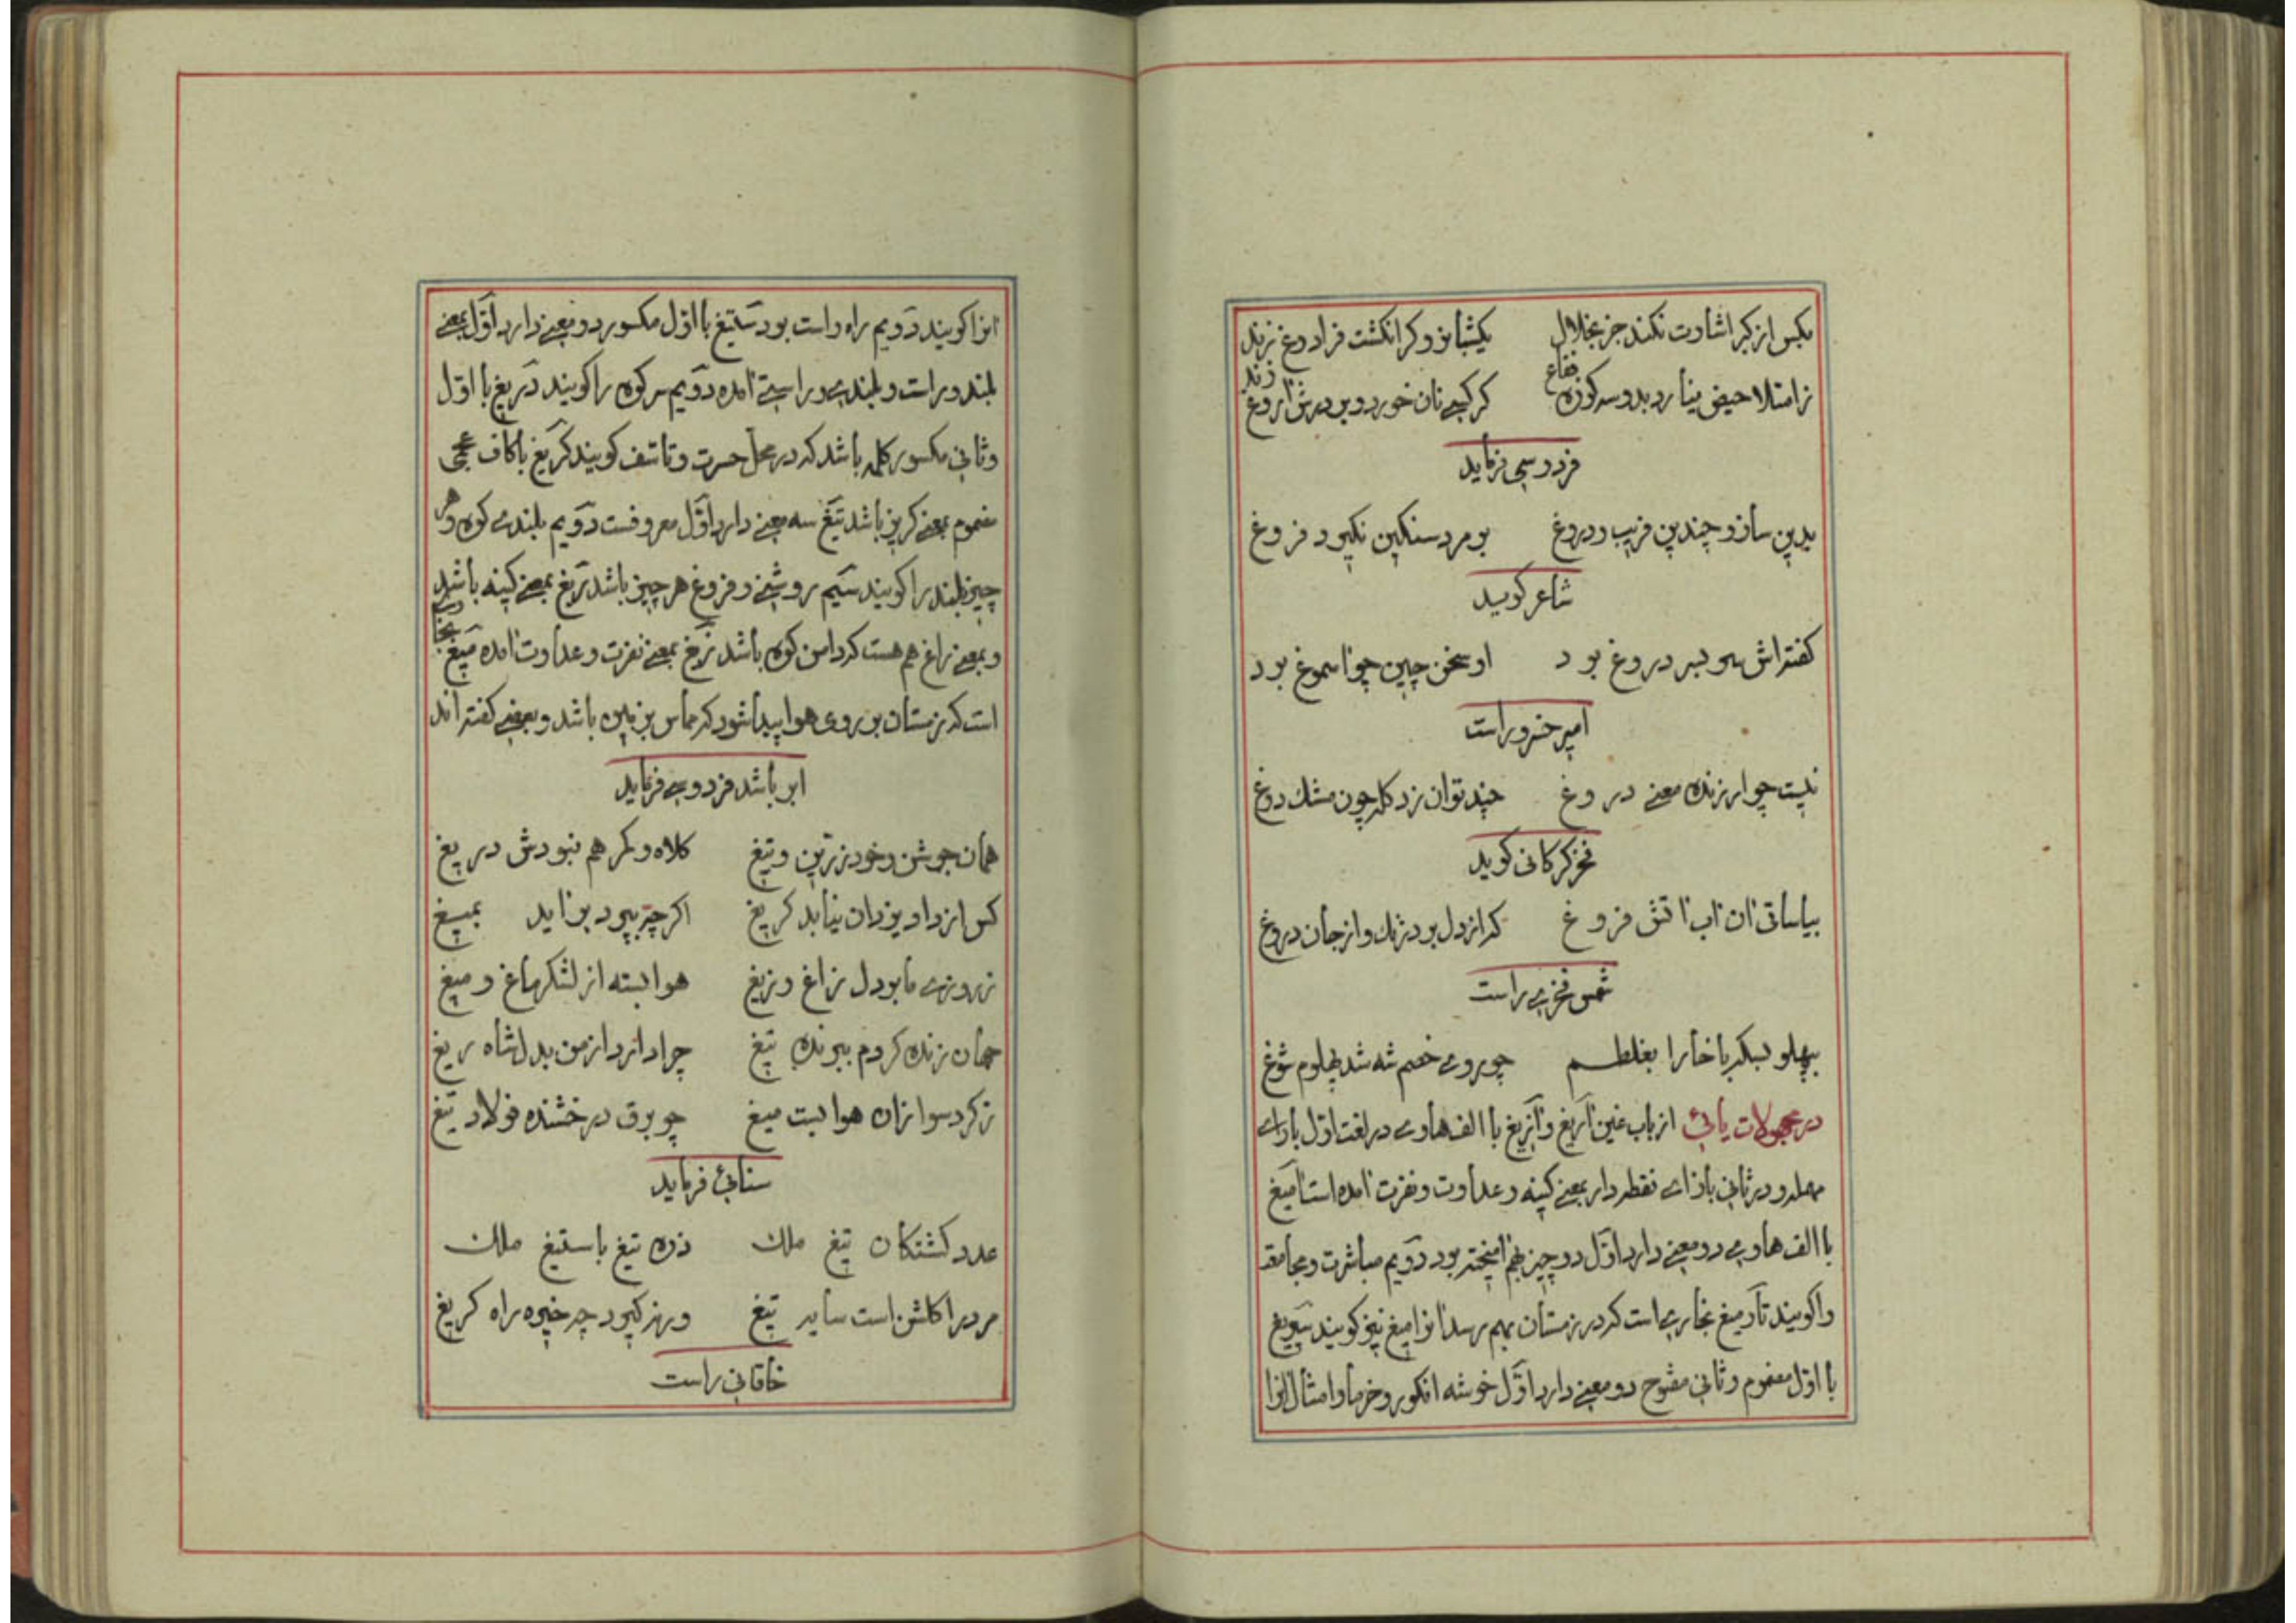 مکس از کبر اشارت نکند جز بخلال یکشبانروز کر انکشت فرا دوغ نزند
ز امتلا حیض بیارد بدو سه کوزه فقاع کر کسی نان خورد و بر درش آروغ زند
فردوسی فرماید
بدین ساز و چندین فریب و دروغ بر مرد سنکین نکیرد فروغ
شاعر کوید
کفته اش سر بسر دروغ بود او سخن چین چو اسموغ بود
امیر خسرو راست
نیست چو ارزنده معنی دروغ چند توان زد کله چون مشک دوغ
فخر کرکانی کوید
بیا ساقی ان اب اتش فروغ که از دل برد زنک و از جان دروغ
شمس فخری راست
بپهلو بسکه با خارا بغلطم چو روی خصم شه شد پهلوم شوغ
در مجهولات یائی از باب غین آریغ و آزیغ با الف هاوی در لغت اول با رای
مهمله و در ثانی با زای نقطه دار بمعنی کینه و عداوت و نفرت امده است آمیغ
با الف هاوی دو معنی دارد اوّل دو چیز بهم امیخته بود دوّیم مباشرت و مجامعة
را کویند تارمیغ بخاری است که در زمستان بهم رسد انرا میغ نیز کویند
با اوّل مضموم و ثانی مفتوح دو معنی دارد اوّل خوشه انکور و خرما و امثال انرا
انرا کویند دوّیم راه راست بود ستیغ با اوّل مکسور دو معنی دارد اوّل بمعنی
بلند و راست و بلندی و راستی امده دوّیم سر کوه را کویند دریغ با اوّل
و ثانی مکسور کلمه باشد که در محلّ حسرت و تاسّف کویند کریغ با کاف عجمی
مضموم بمعنی کریز باشد تیغ سه معنی دارد اوّل معروفست دوّیم بلندی کوه و هر
چیز بلند را کویند سیّم روشنی و فروغ هر چیز باشد زیغ بمعنی کینه باشد
و بمعنی زاغ هم هست که دامن کوه باشد زیغ بمعنی نفرت و عداوت امده میغ بخاری
است که زمستان بر روی هوا پیدا شود که مماس بزمین باشد و بعضی کفته اند
ابر باشد فردوسی فرماید
همان جوشن و خود زرّین و تیغ کلاه و کمر هم نبودش دریغ
کس از داد یزدان نیابد کریغ اکر چه بپرد براید بمیغ
ز روزی ما بود دل زاغ و زیغ هوا بسته از لشکر ماغ و میغ
جهان زنده کردم ببرنده تیغ چرا دارد از من بدل شاه ریغ
ز کرد سواران هوا بست میغ چو برق درخشنده فولاد تیغ
سنائی فرماید
عدد کشتکان تیغ ملک ذره تیغ با ستیغ ملک
مرد را کلشن است سایه تیغ ور نه کیرد چه خیره راه کریغ
خاقانی راست